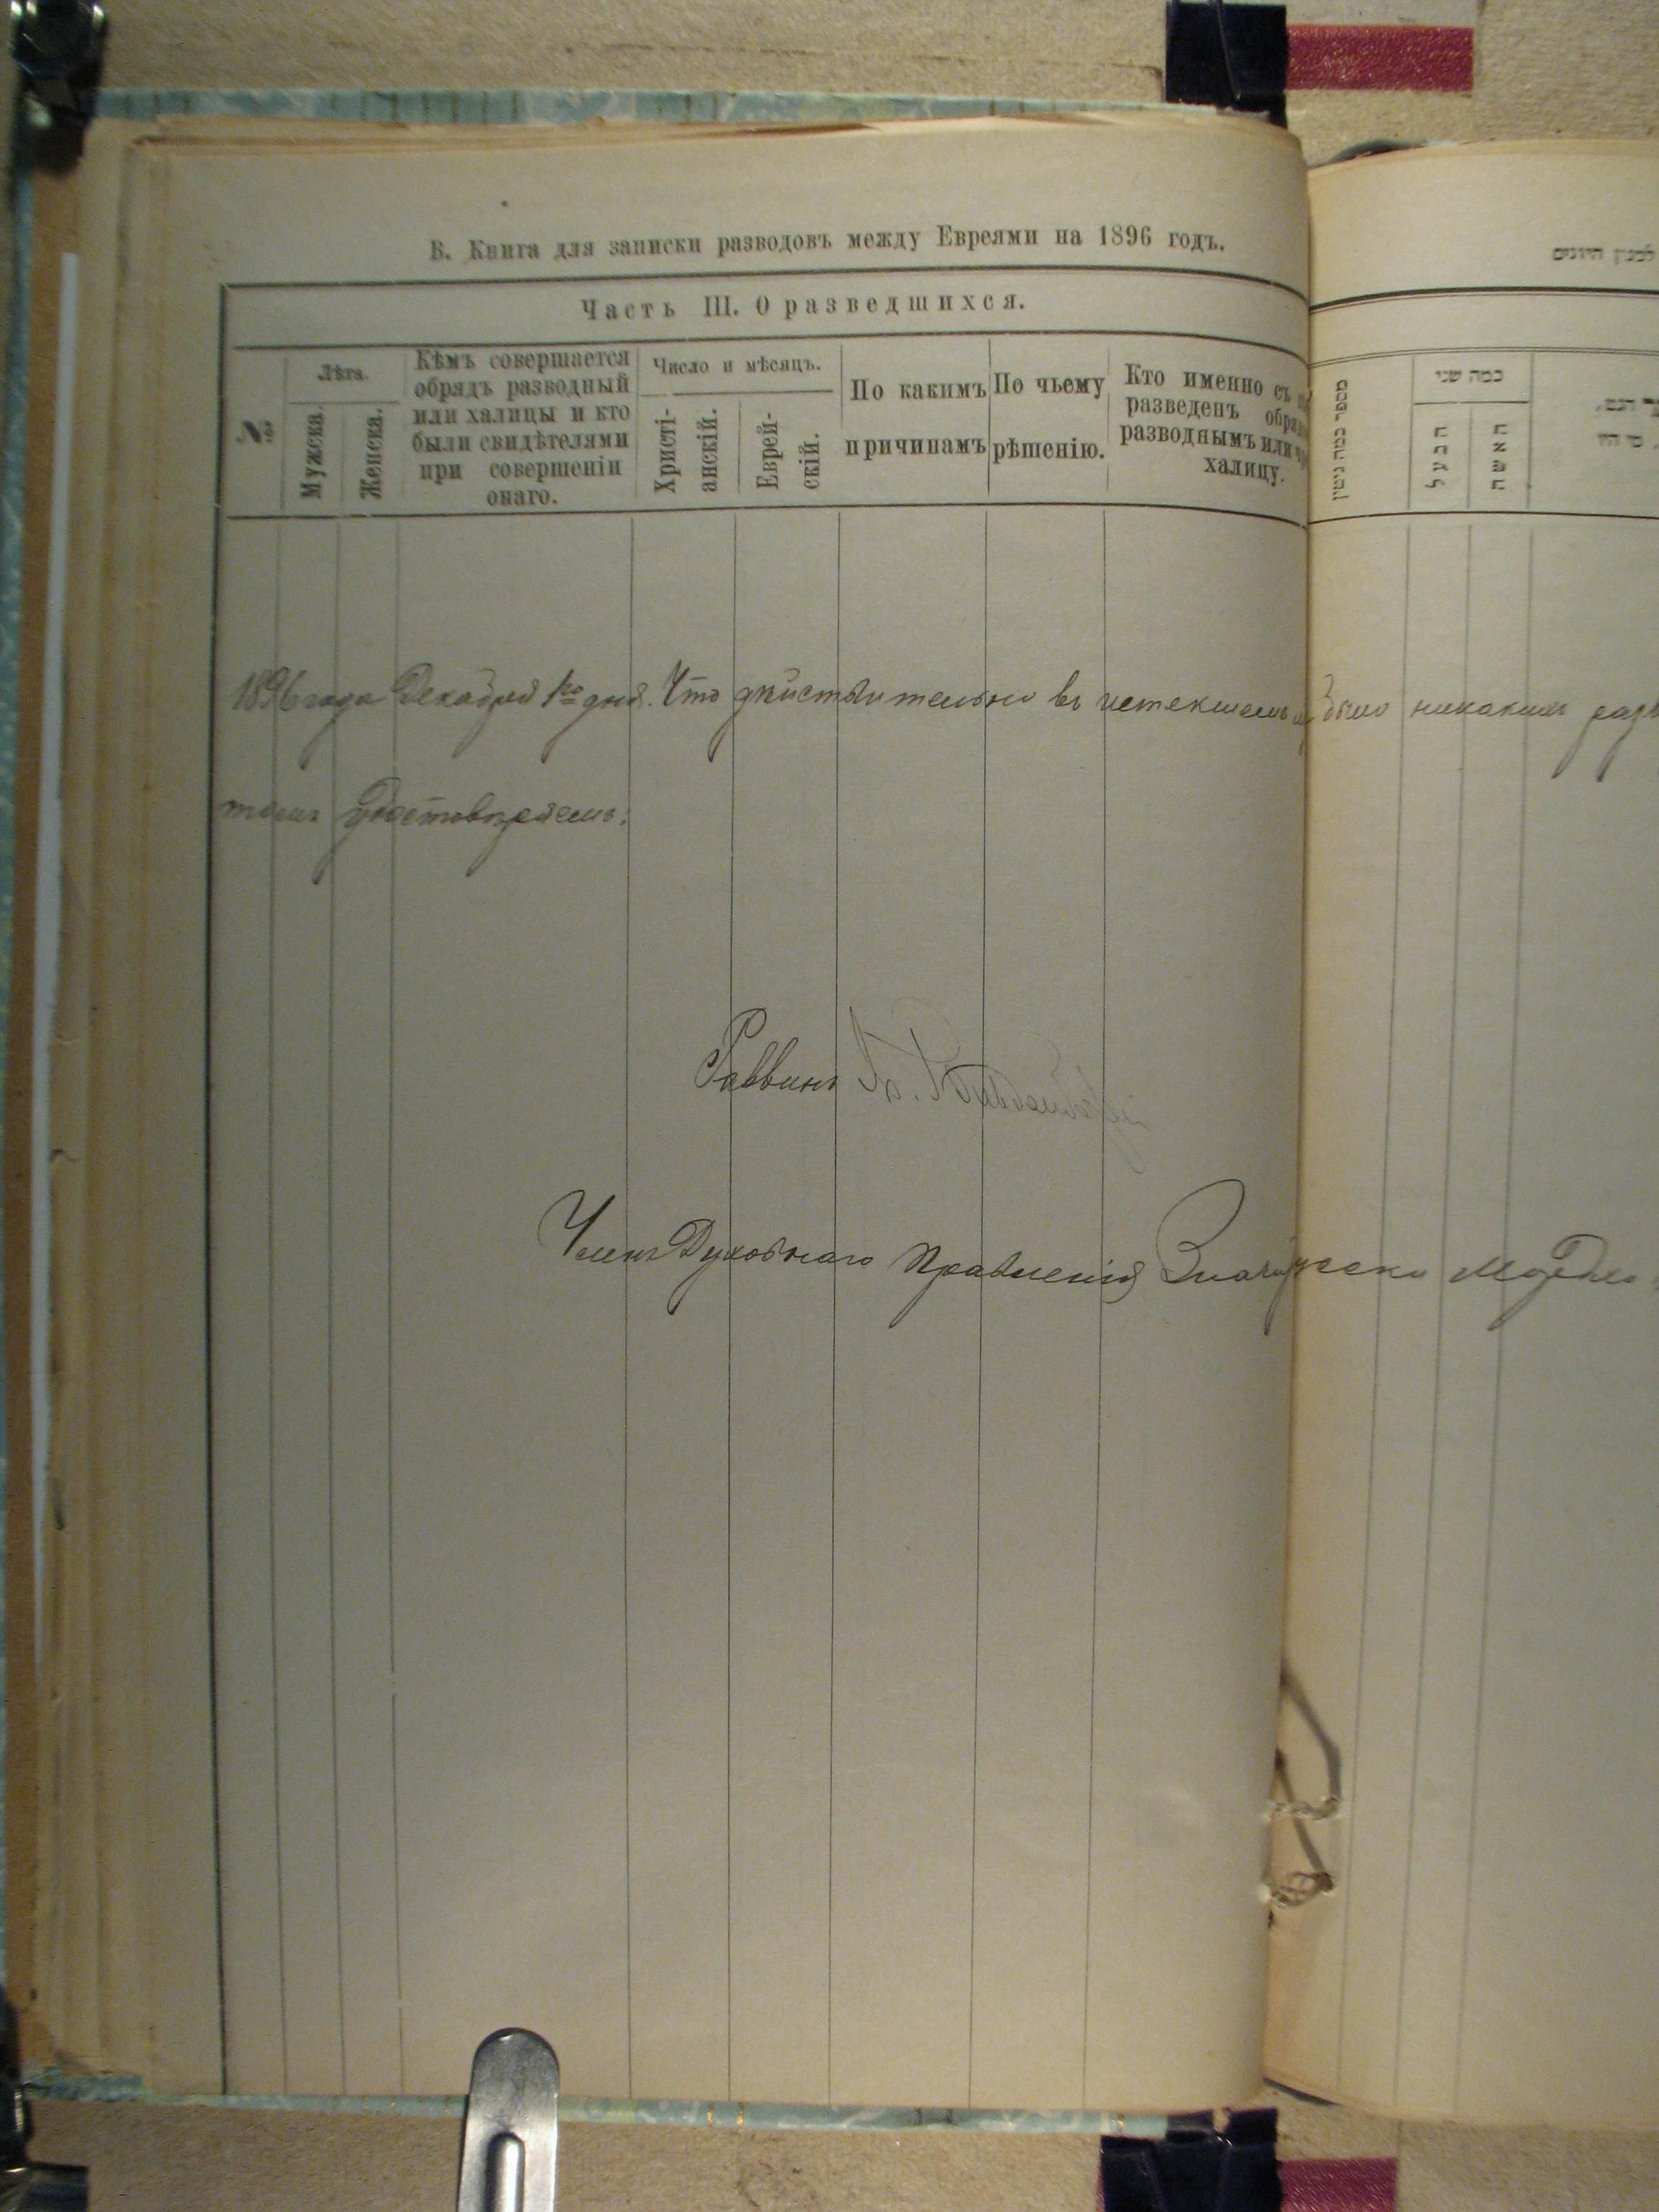 В. Книга для записки разводовъ между Евреями на 1896 годъ.
Часть III. О разведшихся.
№
Лѣта.
Мужска.
Женска.
Кѣмъ совершается
обрядъ разводный
или халицы и кто
были свидѣтелями
при совершеніи
онаго.
Число и мѣсяцъ.
Христі-
анскій.
Еврей-
скій.
По какимъ
причинамъ
По чьему
рѣшенію.
Кто именно съ
разведенъ
разводнымъ или
халицу.
למנין היונים
מספר כמה גיטין
כמה שני
הבעל
האשה
1896 года Декабря 1го дня. Что дѣйствительно въ истекшемъ было никакихъ
томъ удостовѣряемъ.
Раввинъ
Членъ Духовнаго Правленія